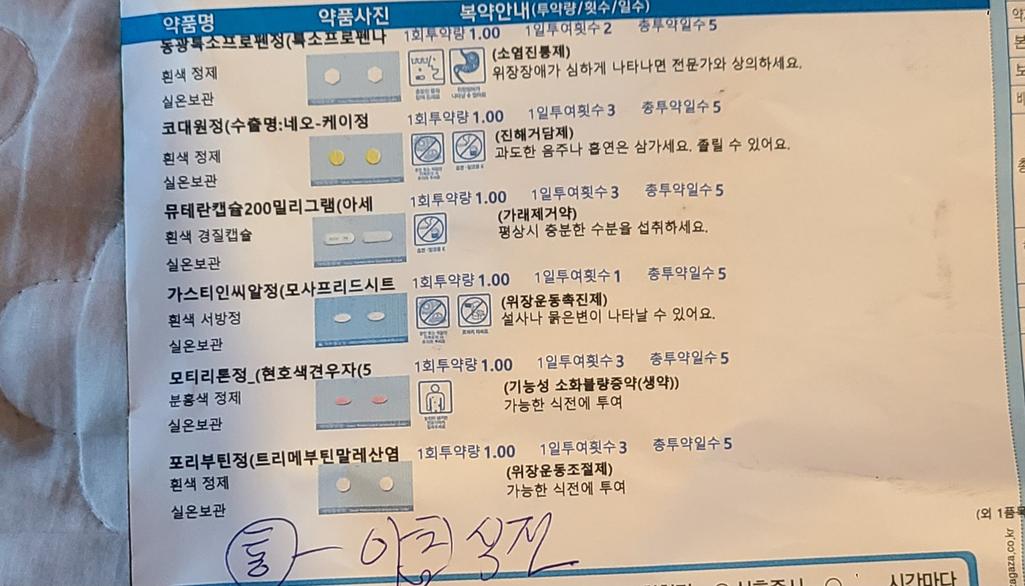 약품명 약품사진 복약안내(투약량/횟수/일수)
동광록소프로펜정(록소프로펜나 1회투약량 1.00 1일투여횟수 2 총투약일수 5
흰색 정제 (소염진통제)
실온보관 위장장애가 심하게 나타나면 전문가와 상의하세요.
코대원정(수출명:네오-케이정 1회투약량 1.00 1일투여횟수 3 총투약일수 5
흰색 정제 (진해거담제)
실온보관 과도한 음주나 흡연은 삼가세요. 졸릴 수 있어요.
뮤테란캡슐200밀리그램(아세 1회투약량 1.00 1일투여횟수 3 총투약일수 5
흰색 경질캡슐 (가래제거약)
실온보관 평상시 충분한 수분을 섭취하세요.
가스티인씨알정(모사프리드시트 1회투약량 1.00 1일투여횟수 1 총투약일수 5
흰색 서방정 (위장운동촉진제)
실온보관 설사나 묽은변이 나타날 수 있어요.
모티리톤정_(현호색견우자(5 1회투약량 1.00 1일투여횟수 3 총투약일수 5
분홍색 정제 (기능성 소화불량증약(생약))
실온보관 가능한 식전에 투여
포리부틴정(트리메부틴말레산염 1회투약량 1.00 1일투여횟수 3 총투약일수 5
흰색 정제 (위장운동조절제)
실온보관 가능한 식전에 투여
(외 1품목
통 - 아침 식전
시간마다